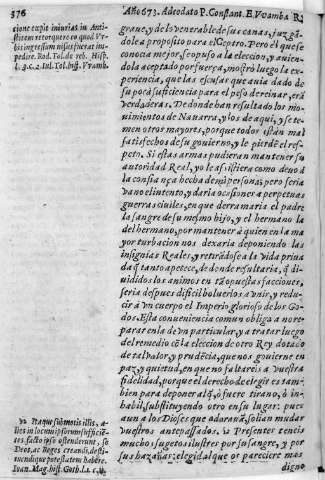 376
Año 673. Adeodato P. Constant. E. Vvamba R.
tione cœpit iniurias in Anti-
stitem retorquere eo quod Vr-
bis ingressum nisus fuerat im-
pedire. Rod. Tol. de reb. Hisp.
l. 3. c. 2. Iul. Tol. hist. Vvamb.
graue, y de lo venerable de sus canas, juzgã-
dole a proposito para el Ceptro. Pero èl que se
conocia mejor, se opuso a la eleccion, y auien-
dola aceptado por fuerça, mostrò luego la ex-
periencia, que las escusas que auia dado de
su poca suficiencia para el peso del reinar, erã
verdaderas. De donde han resultado los mo-
uimientos de Nauarra, y los de aqui, y se te-
men otros mayores, porque todos estàn mal
satisfechos de su gouierno, y le pierdẽ el res-
peto. Si estas armas pudieran mantener su
autoridad Real, yo le assistiera como deuo à
la confiança hecha de mi persona; pero seria
vano el intento, y darla ocasion a perpetuas
guerras ciuiles, en que derramaria el padre
la sangre de su mesmo hijo, y el hermano la
del hermano, por mantener à quien en la ma
yor turbacion nos dexaria deponiendo las
insignias Reales, y retirãdose a la vida priua
da q̃ tanto apetece, de donde resultaria, q̃ di-
uididos los animos en tã opuestas facciones,
seria despues dificil boluerlos a vnir, y redu-
cir à vn cuerpo el Imperio glorioso de los Go-
dos. Esta conueniencia comun obliga a no re-
parar en la de vn particular, y a tratar luego
del remedio cõ la eleccion de otro Rey dotado
de tal valor, y prudẽcia, que nos gouierne en
paz, y quietud, en que no faltareis a vuestra
fidelidad, porque el derecho de elegir es tam-
bien para deponer al q̃, ò fuere tirano, ò in-
habil, substituyendo otro en su lugar: pues
aun a los Dioses que adorauã, solian mudar
vuestros antepassados. 12 Presentes teneis
muchos sugetos ilustres por su sangre, y por
sus hazañas; elegid al que os pareciere mas
digno
12 Itaque submotis illis, a-
lios in locum ipsorum sufficiẽ-
tes, facto ipso ostenderunt, se
Deos, ac Reges creandi, desti-
tuendique potestatem habere.
Ioan. Mag. hist. Goth. l. 1. c. 4.